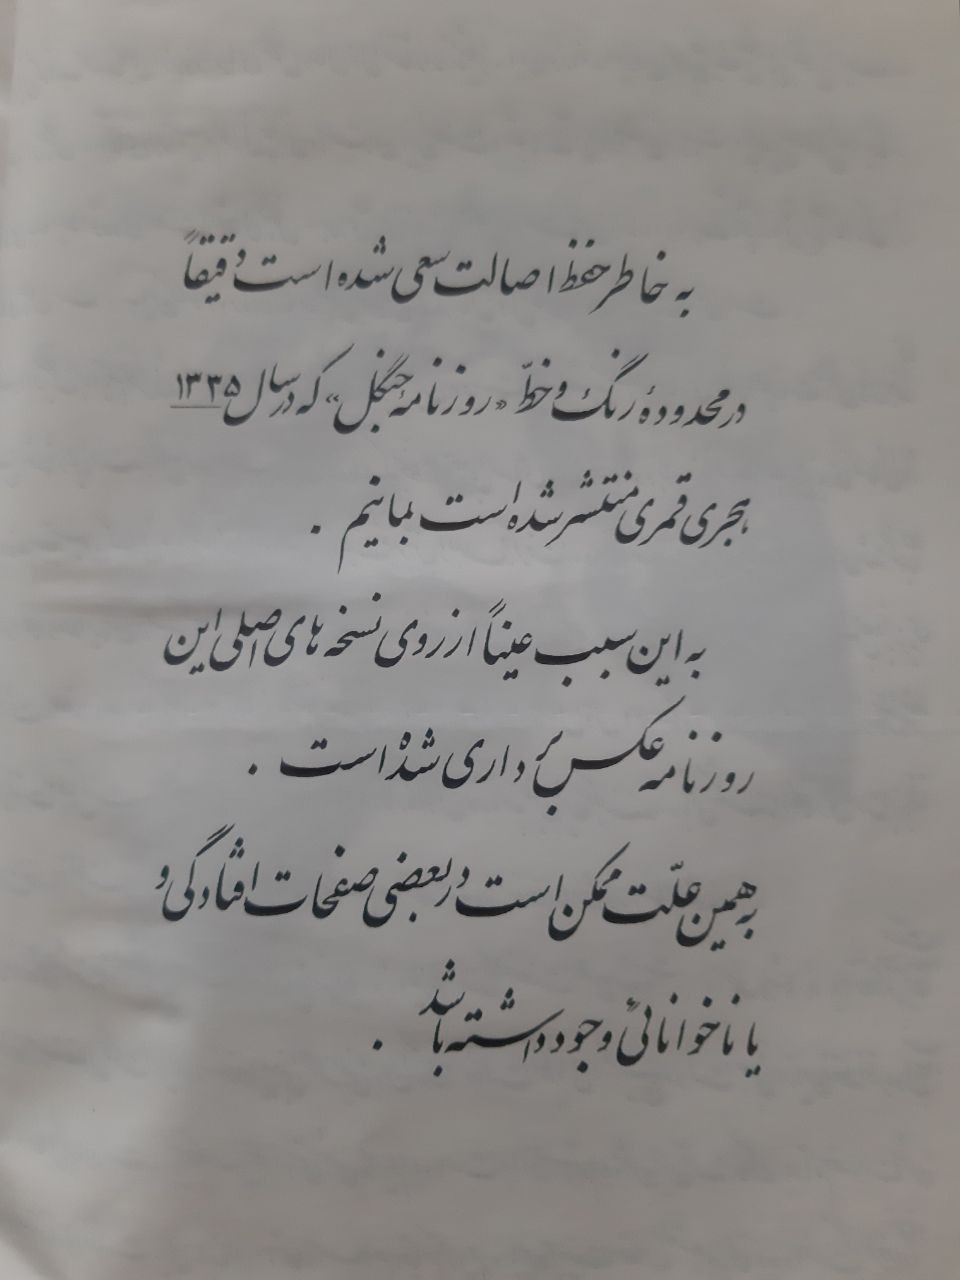 به خاطر حفظ اصالت سعی شده است دقیقاً
در محدودهٔ رنگ و خطّ «روزنامهٔ جنگل» که در سال ۱۳۳۵
هجری قمری منتشر شده است بمانیم .
به این سبب عیناً از روی نسخه های اصلی این
روزنامه عکس برداری شده است .
به همین علّت ممکن است در بعضی صفحات افتادگی و
یا ناخوانائی وجود داشته باشد .